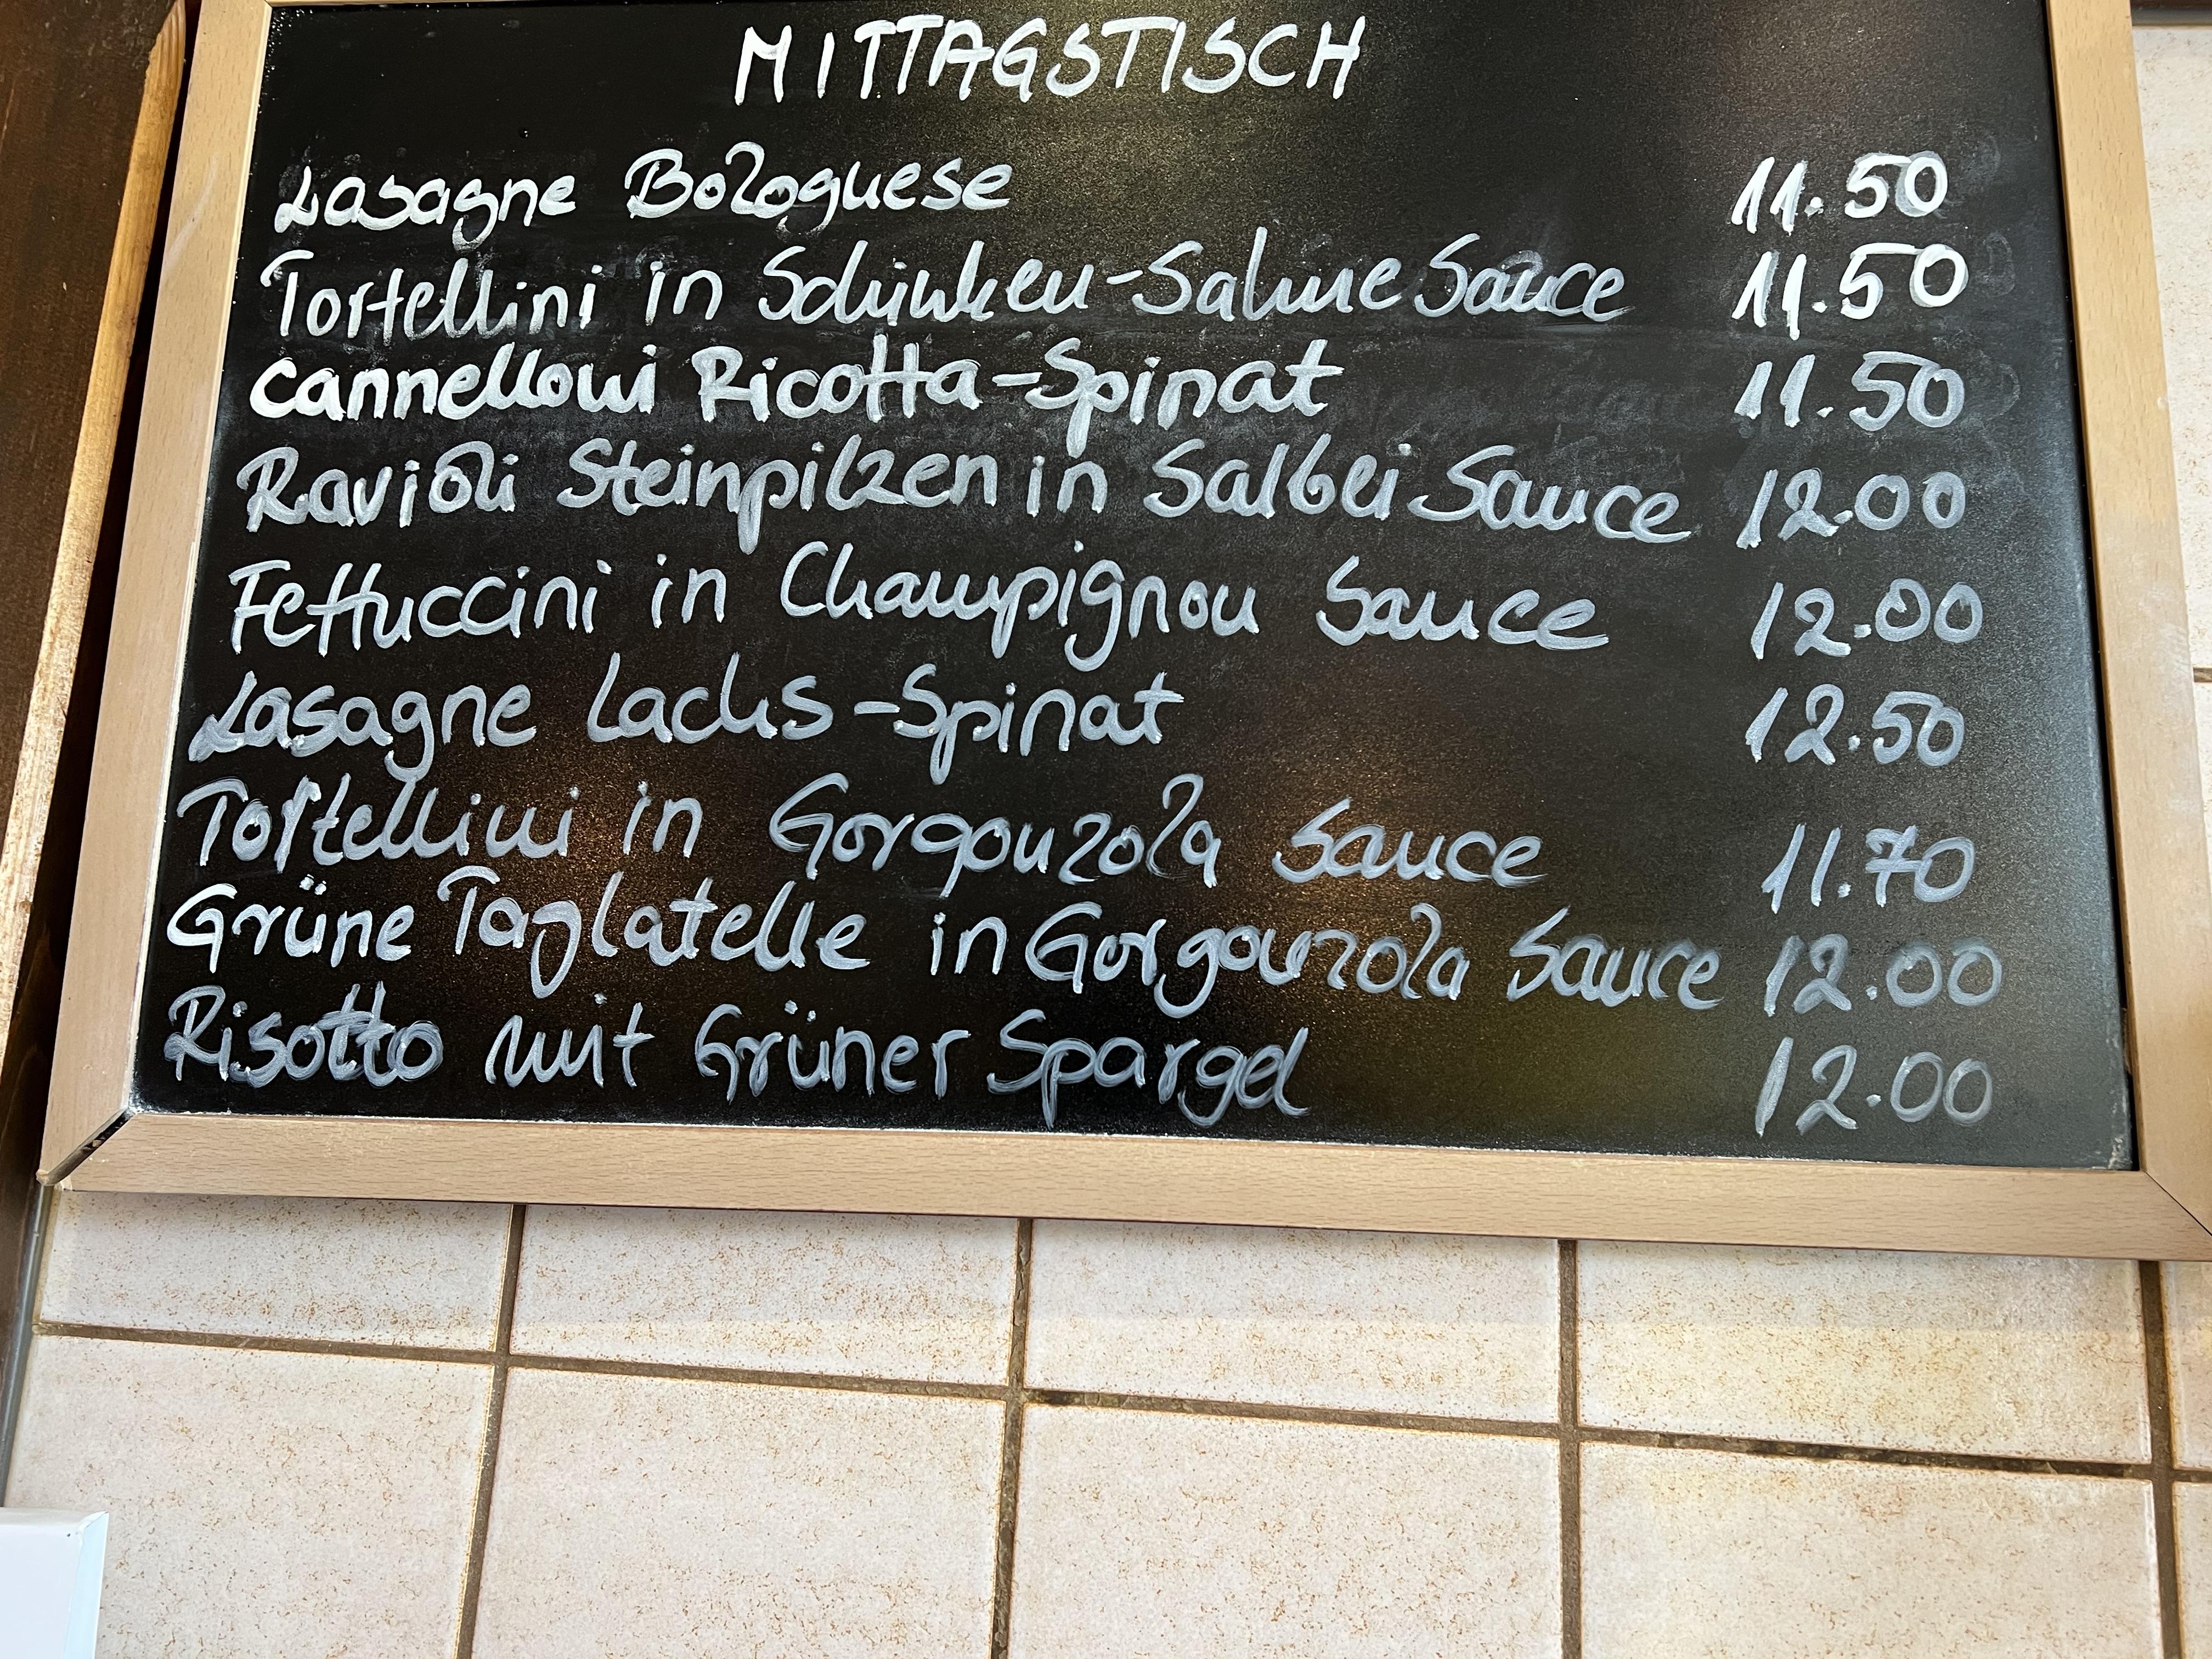 MITTAGSTISCH
Lasagne Bolognese 11.50
Tortellini in Schinken-Sahne Sauce 11.50
Cannelloni Ricotta-Spinat 11.50
Ravioli Steinpilzen in Salbei Sauce 12.00
Fettuccini in Champignon Sauce 12.00
Lasagne Lachs-Spinat 12.50
Tortellini in Gorgonzola Sauce 11.70
Grüne Taglatelle in Gorgonzola Sauce 12.00
Risotto mit Grüner Spargel 12.00